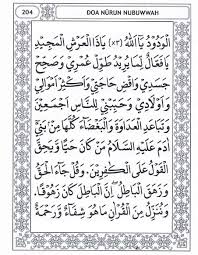 204
DOA NÛRUN NUBUWWAH
الْوَدُوْدُ يَآاَللّٰهُ (٣×) يَاذَا الْعَرْشِ الْمَجِيْدِ
يَافَعَّالُ لِمَا يُرِيْدُ طَوِّلْ عُمْرِيْ وَصَحِّحْ
جَسَدِيْ وَاقْضِ حَاجَتِيْ وَاَكْثِرْ اَمْوَالِيْ
وَاَوْلَادِيْ وَحَبِّبْنِيْ لِلنَّاسِ اَجْمَعِيْنَ
وَتَبَاعَدِ الْعَدَاوَةَ وَالْبَغْضَآءَ كُلَّهَا مِنْ بَنِيْ
اٰدَمَ عَلَيْهِ السَّلَامُ مَنْ كَانَ حَيًّا وَّيَحِقَّ
الْقَوْلُ عَلَى الْكٰفِرِيْنَ. وَقُلْ جَآءَ الْحَقُّ
وَزَهَقَ الْبَاطِلُ اِنَّ الْبَاطِلَ كَانَ زَهُوْقًا.
وَنُنَزِّلُ مِنَ الْقُرْاٰنِ مَا هُوَ شِفَآءٌ وَّرَحْمَةٌ